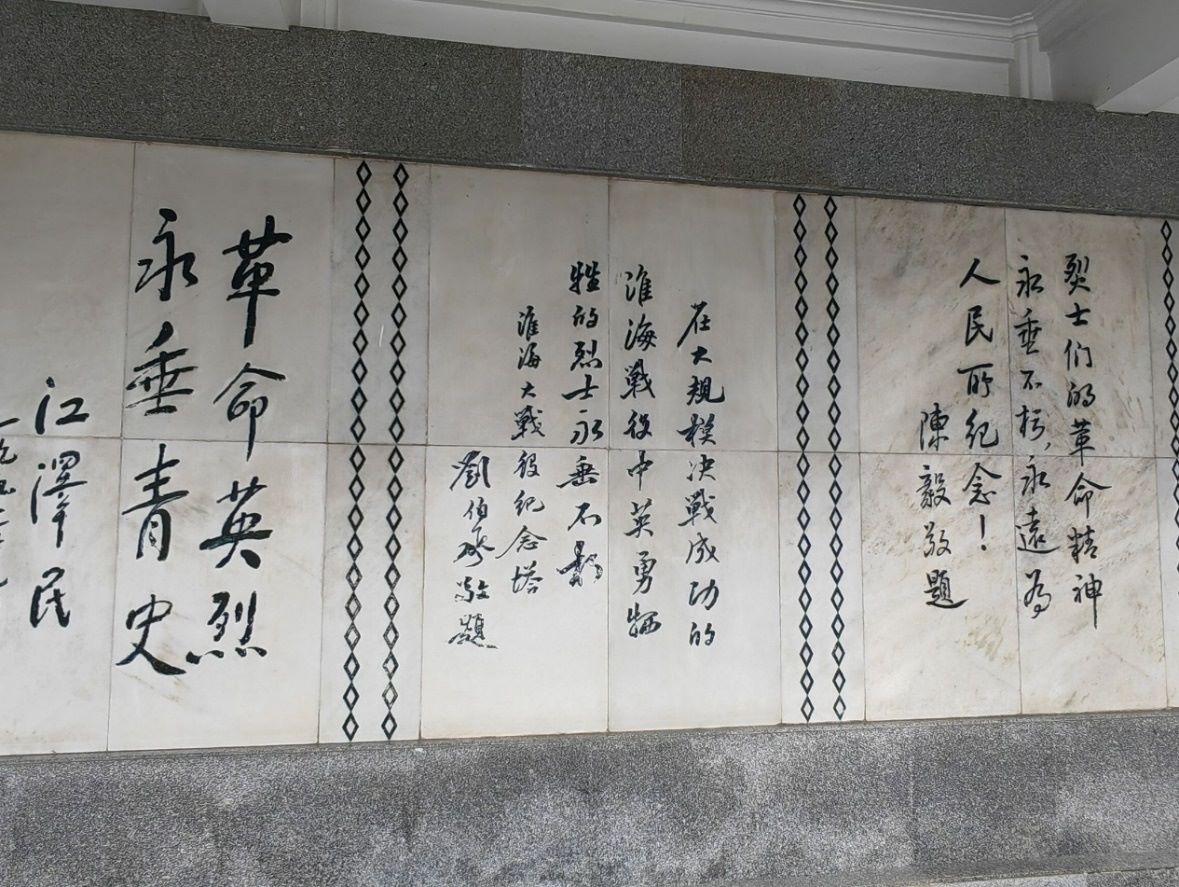 烈士们的革命精神
永垂不朽、永遠為
人民所纪念！
陳毅敬題
在大規模决戰成功的
淮海戰役中英勇牺
牲的烈士永垂不朽
淮海大戰役纪念塔
劉伯承敬題
革命英烈
永垂青史
江澤民